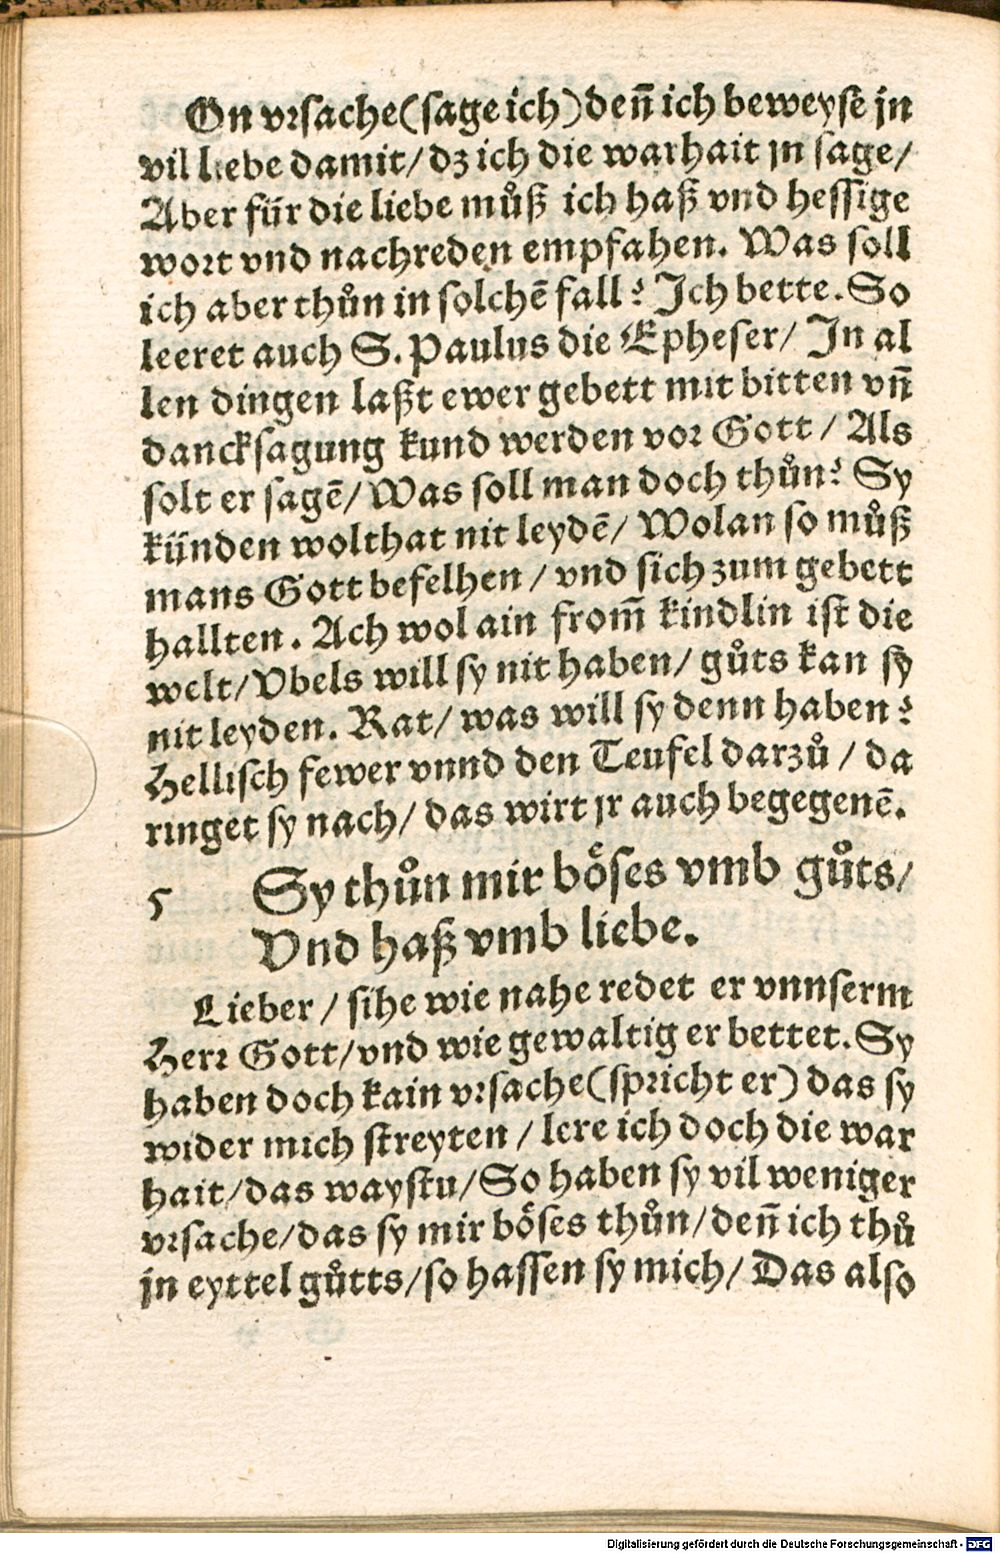 On vrsache(sage ich)deñ ich beweyse jn
vil liebe damit/dz ich die warhait jn sage/
Aber für die liebe můß ich haß vnd hessige
wort vnd nachreden empfahen. Was soll
ich aber thůn in solchē fall? Ich bette. So
leeret auch S. Paulus die Epheser/ In al
len dingen laßt ewer gebett mit bitten vñ
dancksagung kund werden vor Gott/ Als
solt er sagē/ Was soll man doch thůn? Sy
künden wolthat nit leydē/ Wolan so můß
mans Gott befelhen/ vnd sich zum gebett
hallten. Ach wol ain from̄ kindlin ist die
welt/Vbels will sy nit haben/ gůts kan sy
nit leyden. Rat/ was will sy denn haben?
Hellisch fewer vnnd den Teufel darzů/ da
ringet sy nach/ das wirt jr auch begegenē.
5 Sy thůn mir böses vmb gůts/
Vnd haß vmb liebe.
Lieber/ sihe wie nahe redet er vnnserm
Herr Gott/vnd wie gewaltig er bettet. Sy
haben doch kain vrsache(spricht er) das sy
wider mich streyten/ lere ich doch die war
hait/das waystu/So haben sy vil weniger
vrsache/das sy mir böses thůn/deñ ich thů
jn eyttel gůtts/so hassen sy mich/ Das also
Digitalisierung gefördert durch die Deutsche Forschungsgemeinschaft - DFG